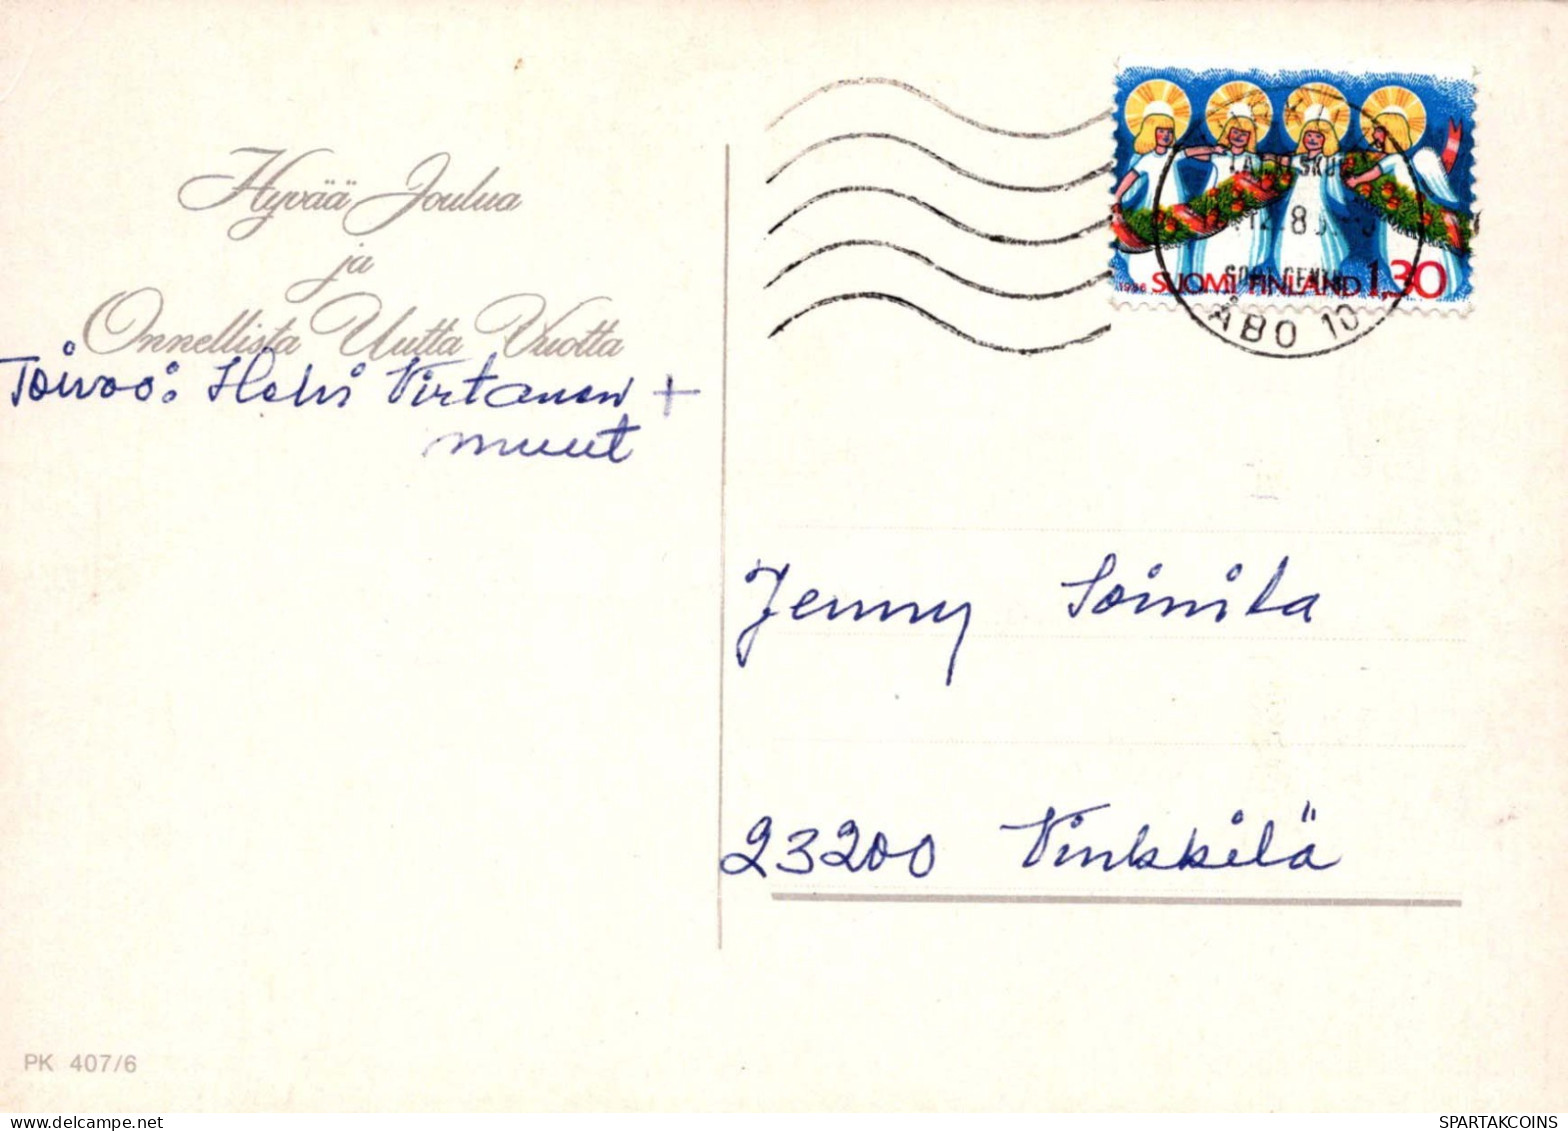 Hyvää Joulua
ja
Onnellista Uutta Vuotta
Toivoo: Helvi Virtanen +
muut
1986 SUOMI FINLAND 1,30
ÅBO 10
Jenny Soinila
23200 Vinkkilä
PK 407/6
SPARTAKCOINS